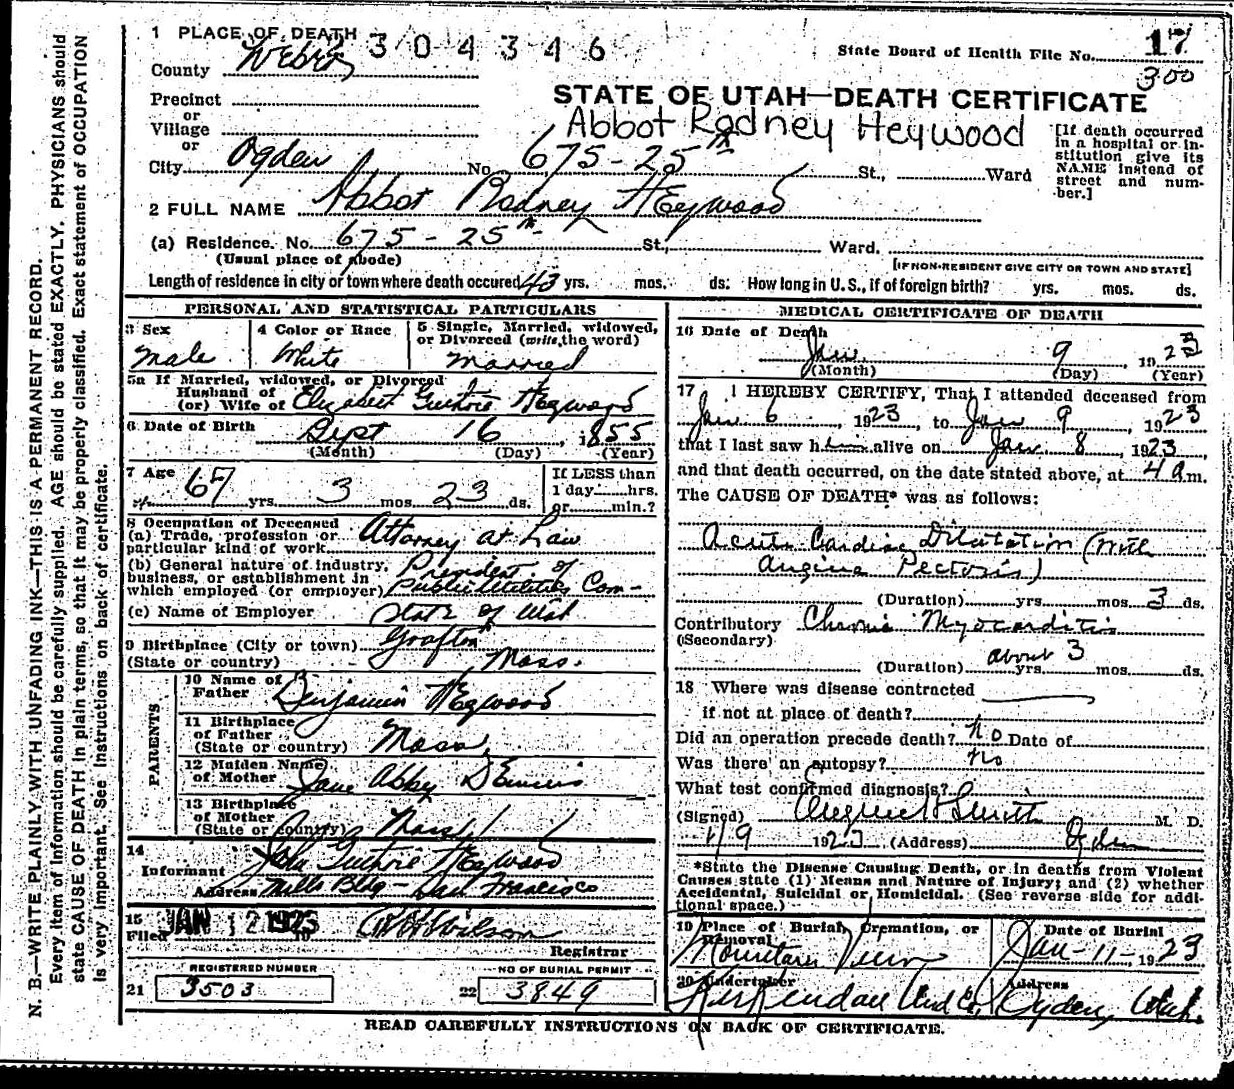 1 PLACE OF DEATH 304346
State Board of Health File No. 17
300
County Weber
Precinct
or
Village
or
City Ogden No. 675 - 25th St., Ward
STATE OF UTAH—DEATH CERTIFICATE
Abbot Rodney Heywood
[If death occurred
in a hospital or in-
stitution give its
NAME instead of
street and num-
ber.]
2 FULL NAME Abbot Rodney Heywood
(a) Residence. No. 675 - 25th St., Ward.
(Usual place of abode)
[IF NON-RESIDENT GIVE CITY OR TOWN AND STATE]
Length of residence in city or town where death occured 43 yrs. mos. ds. How long in U.S., if of foreign birth? yrs. mos. ds.
PERSONAL AND STATISTICAL PARTICULARS
3 Sex
Male
4 Color or Race
White
5 Single, Married, widowed,
or Divorced (write the word)
Married
5a If Married, widowed, or Divorced
Husband of
(or) Wife of Elizabeth Guthrie Heywood
6 Date of Birth Sept 16, 1855
(Month) (Day) (Year)
7 Age 67 yrs. 3 mos. 23 ds.
If LESS than
1 day hrs.
or min.?
8 Occupation of Deceased
(a) Trade, profession or
particular kind of work Attorney at Law
(b) General nature of industry,
business, or establishment in
which employed (or employer) President of
Public Utilities Com-
(c) Name of Employer State of Utah
9 Birthplace (City or town) Grafton
(State or country) Mass.
PARENTS
10 Name of
Father Benjamin Heywood
11 Birthplace
of Father
(State or country) Mass.
12 Maiden Name
of Mother Jane Abby
13 Birthplace
of Mother
(State or country) Mass.
14
Informant John Guthrie Heywood
Address Mills Bldg - San Francisco
15
Filed JAN 12 1923 19 Wilson
Registrar
REGISTERED NUMBER
21 3503
NO OF BURIAL PERMIT
22 3849
MEDICAL CERTIFICATE OF DEATH
16 Date of Death
Jan 9, 1923
(Month) (Day) (Year)
17 I HEREBY CERTIFY, That I attended deceased from
Jan 6, 1923, to Jan 9, 1923
that I last saw him alive on Jan. 8, 1923,
and that death occurred, on the date stated above, at 4 a m.
The CAUSE OF DEATH* was as follows:
Acute Cardiac Dilatation (with
Angina Pectoris)
(Duration) yrs. mos. 3 ds.
Contributory Chronic Myocarditis
(Secondary)
(Duration) about 3 yrs. mos. ds.
18 Where was disease contracted
if not at place of death?
Did an operation precede death? No Date of
Was there an autopsy? No
What test confirmed diagnosis?
(Signed) M. D.
1/9 1923 (Address) Ogden
*State the Disease Causing Death, or in deaths from Violent
Causes state (1) Means and Nature of Injury; and (2) whether
Accidental, Suicidal or Homicidal. (See reverse side for addi-
tional space.)
19 Place of Burial, Cremation, or
Removal
Mountain View
Date of Burial
Jan - 11 -, 1923
20 Undertaker
Kirkendall Und Co,
Address
Ogden, Utah.
READ CAREFULLY INSTRUCTIONS ON BACK OF CERTIFICATE.
N. B.—WRITE PLAINLY WITH UNFADING INK—THIS IS A PERMANENT RECORD.
Every item of information should be carefully supplied. AGE should be stated EXACTLY. PHYSICIANS should
state CAUSE OF DEATH in plain terms, so that it may be properly classified. Exact statement of OCCUPATION
is very important. See instructions on back of certificate.